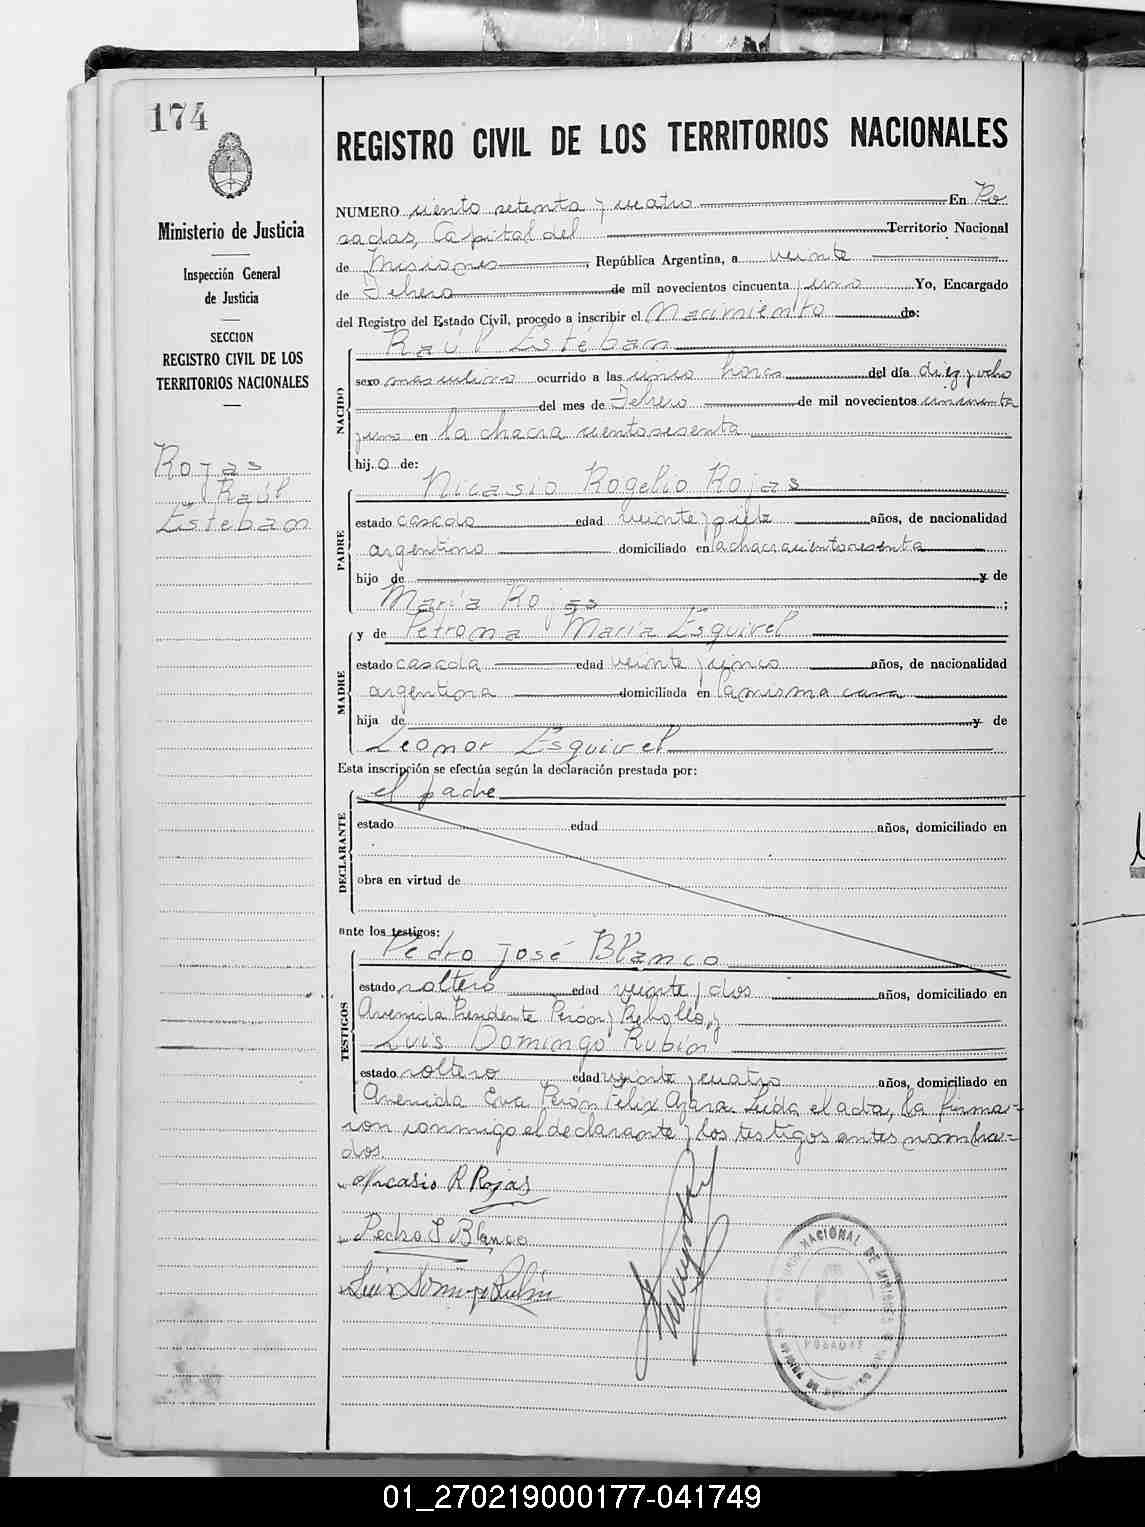 174
Ministerio de Justicia
Inspección General
de Justicia
SECCION
REGISTRO CIVIL DE LOS
TERRITORIOS NACIONALES
Rojas
Raúl
Esteban
REGISTRO CIVIL DE LOS TERRITORIOS NACIONALES
NUMERO ciento setenta y cuatro En Po
sadas, Capital del Territorio Nacional
de Misiones, República Argentina, a veinte
de Febrero de mil novecientos cincuenta y uno Yo, Encargado
del Registro del Estado Civil, procedo a inscribir el Nacimiento de:
NACIDO
Raúl Estéban
sexo masculino ocurrido a las cinco horas del día diez y ocho
del mes de Febrero de mil novecientos cincuenta
y uno en la chacra ciento sesenta
hijo de:
PADRE
Nicasio Rogelio Rojas
estado casado edad veinte y siete años, de nacionalidad
argentino domiciliado en la chacra ciento sesenta
hijo de y de
María Rojas ;
MADRE
y de Petrona María Esquivel
estado casada edad veinte y cinco años, de nacionalidad
argentina domiciliada en la misma casa
hija de y de
Leonor Esquivel
Esta inscripción se efectúa según la declaración prestada por:
DECLARANTE
el padre
estado edad años, domiciliado en
obra en virtud de
ante los testigos:
TESTIGOS
Pedro José Blanco
estado soltero edad veinte y dos años, domiciliado en
Avenida Presidente Perón y Rebollo, y
Luis Domingo Rubin
estado soltero edad veinte y cuatro años, domiciliado en
Avenida Eva Perón Felix Azara. Leída el acta, la firma-
ron conmigo el declarante y los testigos antes nombra-
dos.
Nicasio R Rojas
Pedro J Blanco
Luis Domingo Rubin
NACIONAL DE MISIONES
POSADAS
01_270219000177-041749